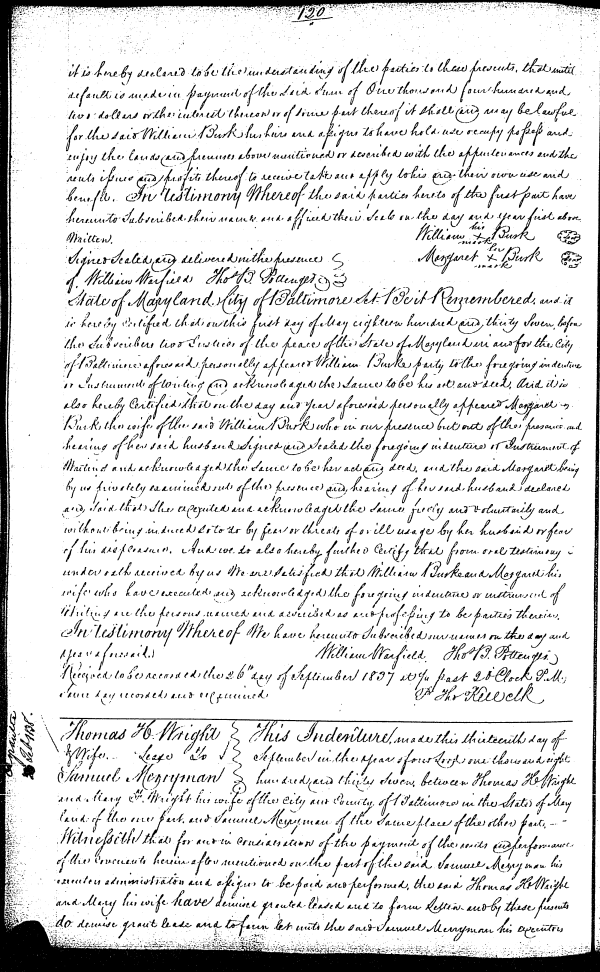 120
it is hereby declared to be the understanding of the parties to these presents, that until
default is made in payment of the said Sum of One thousand four hundred and
two dollars or the interest thereon or of some part thereof it shall and may be lawful
for the said William Burk his heirs and assigns to have hold use occupy possess and
enjoy the lands and premises above mentioned or described with the appurtenances and the
rents issues and profits thereof to receive take and apply to his and their own use and
benefit. In testimony Whereof the said parties hereto of the first part have
hereunto Subscribed their names and affixed their Seals on the day and year first above
Written.
William his + mark Burk
Signed Sealed and delivered in the presence
Margaret her + mark Burk
of William Warfield Thos B. Pottenger
State of Maryland City of Baltimore Sct Be it Remembered, and it
is hereby certified that on this first day of May eighteen hundred and thirty Seven, before
the Subscribers two Justices of the peace of the State of Maryland in and for the City
of Baltimore aforesaid personally appeared William Burke party to the foregoing indenture
or Instrument of Writing and acknowledged the Same to be his act and deed, And it is
also hereby Certified that on the day and year aforesaid personally appeared Margaret
Burk the wife of the said William Burk who in our presence but out of the presence and
hearing of her said husband Signed and Sealed the foregoing indenture or Instrument of
Writing and acknowledged the Same to be her act and deed, and the said Margaret being
by us privately examined out of the presence and hearing of her said husband declared
and Said that She executed and acknowledged the same freely and voluntarily and
without being induced so to do by fear or threats of or ill usage by her husband or fear
of his displeasure. And we do also hereby further Certify that from oral testimony
under oath received by us We are Satisfied that William Burke and Margaret his
wife who have executed and acknowledged the foregoing indenture or instrument of
Writing are the persons named and described as and professing to be parties therein.
In testimony Whereof We have hereunto Subscribed our names on the day and
year aforesaid.
William Warfield Thos B. Pottenger
Received to be recorded the 26th day of September 1837 at past 2 O Clock P.M.
Same day recorded and examined
Pr Tho Kell Clk
Thomas H. Wright
& Wife Lease To
Samuel Merryman
This Indenture, made this thirteenth day of
September in the year of our Lord one thousand eight
hundred and thirty Seven, between Thomas H. Wright
and Mary Wright his wife of the City and County of Baltimore in the State of Mary
land of the one part, and Samuel Merryman of the Same place of the other part,
Witnesseth that for and in consideration of the payment of the rents and performance
of the Covenants herein after mentioned on the part of the said Samuel Merryman his
executors administrators and assigns to be paid and performed, the said Thomas H. Wright
and Mary his wife have demised granted leased and to farm Letten and by these presents
do demise grant lease and to farm let unto the said Samuel Merryman his executors